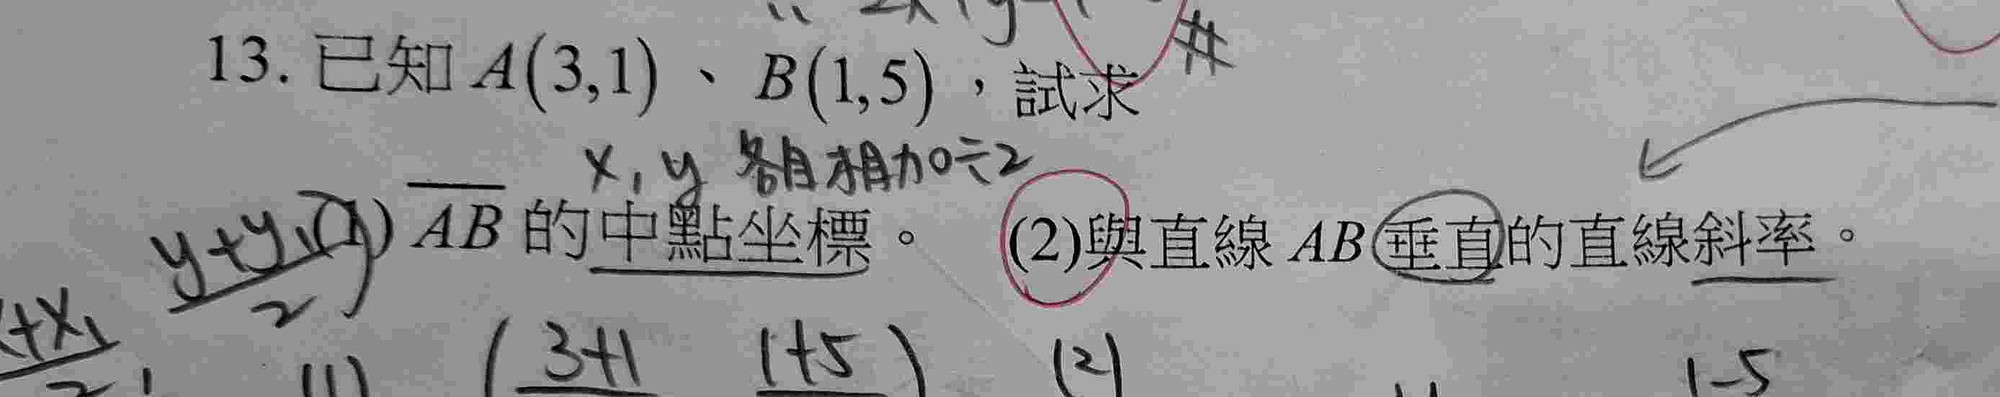 13. 已知 A(3,1)、B(1,5)，試求
x, y 各自相加÷2
(1) AB 的中點坐標。 (2)與直線 AB 垂直的直線斜率。
y+y₁
2
+x₁
2 ,
(1) ( 3+1 1+5 ) (2) 1-5